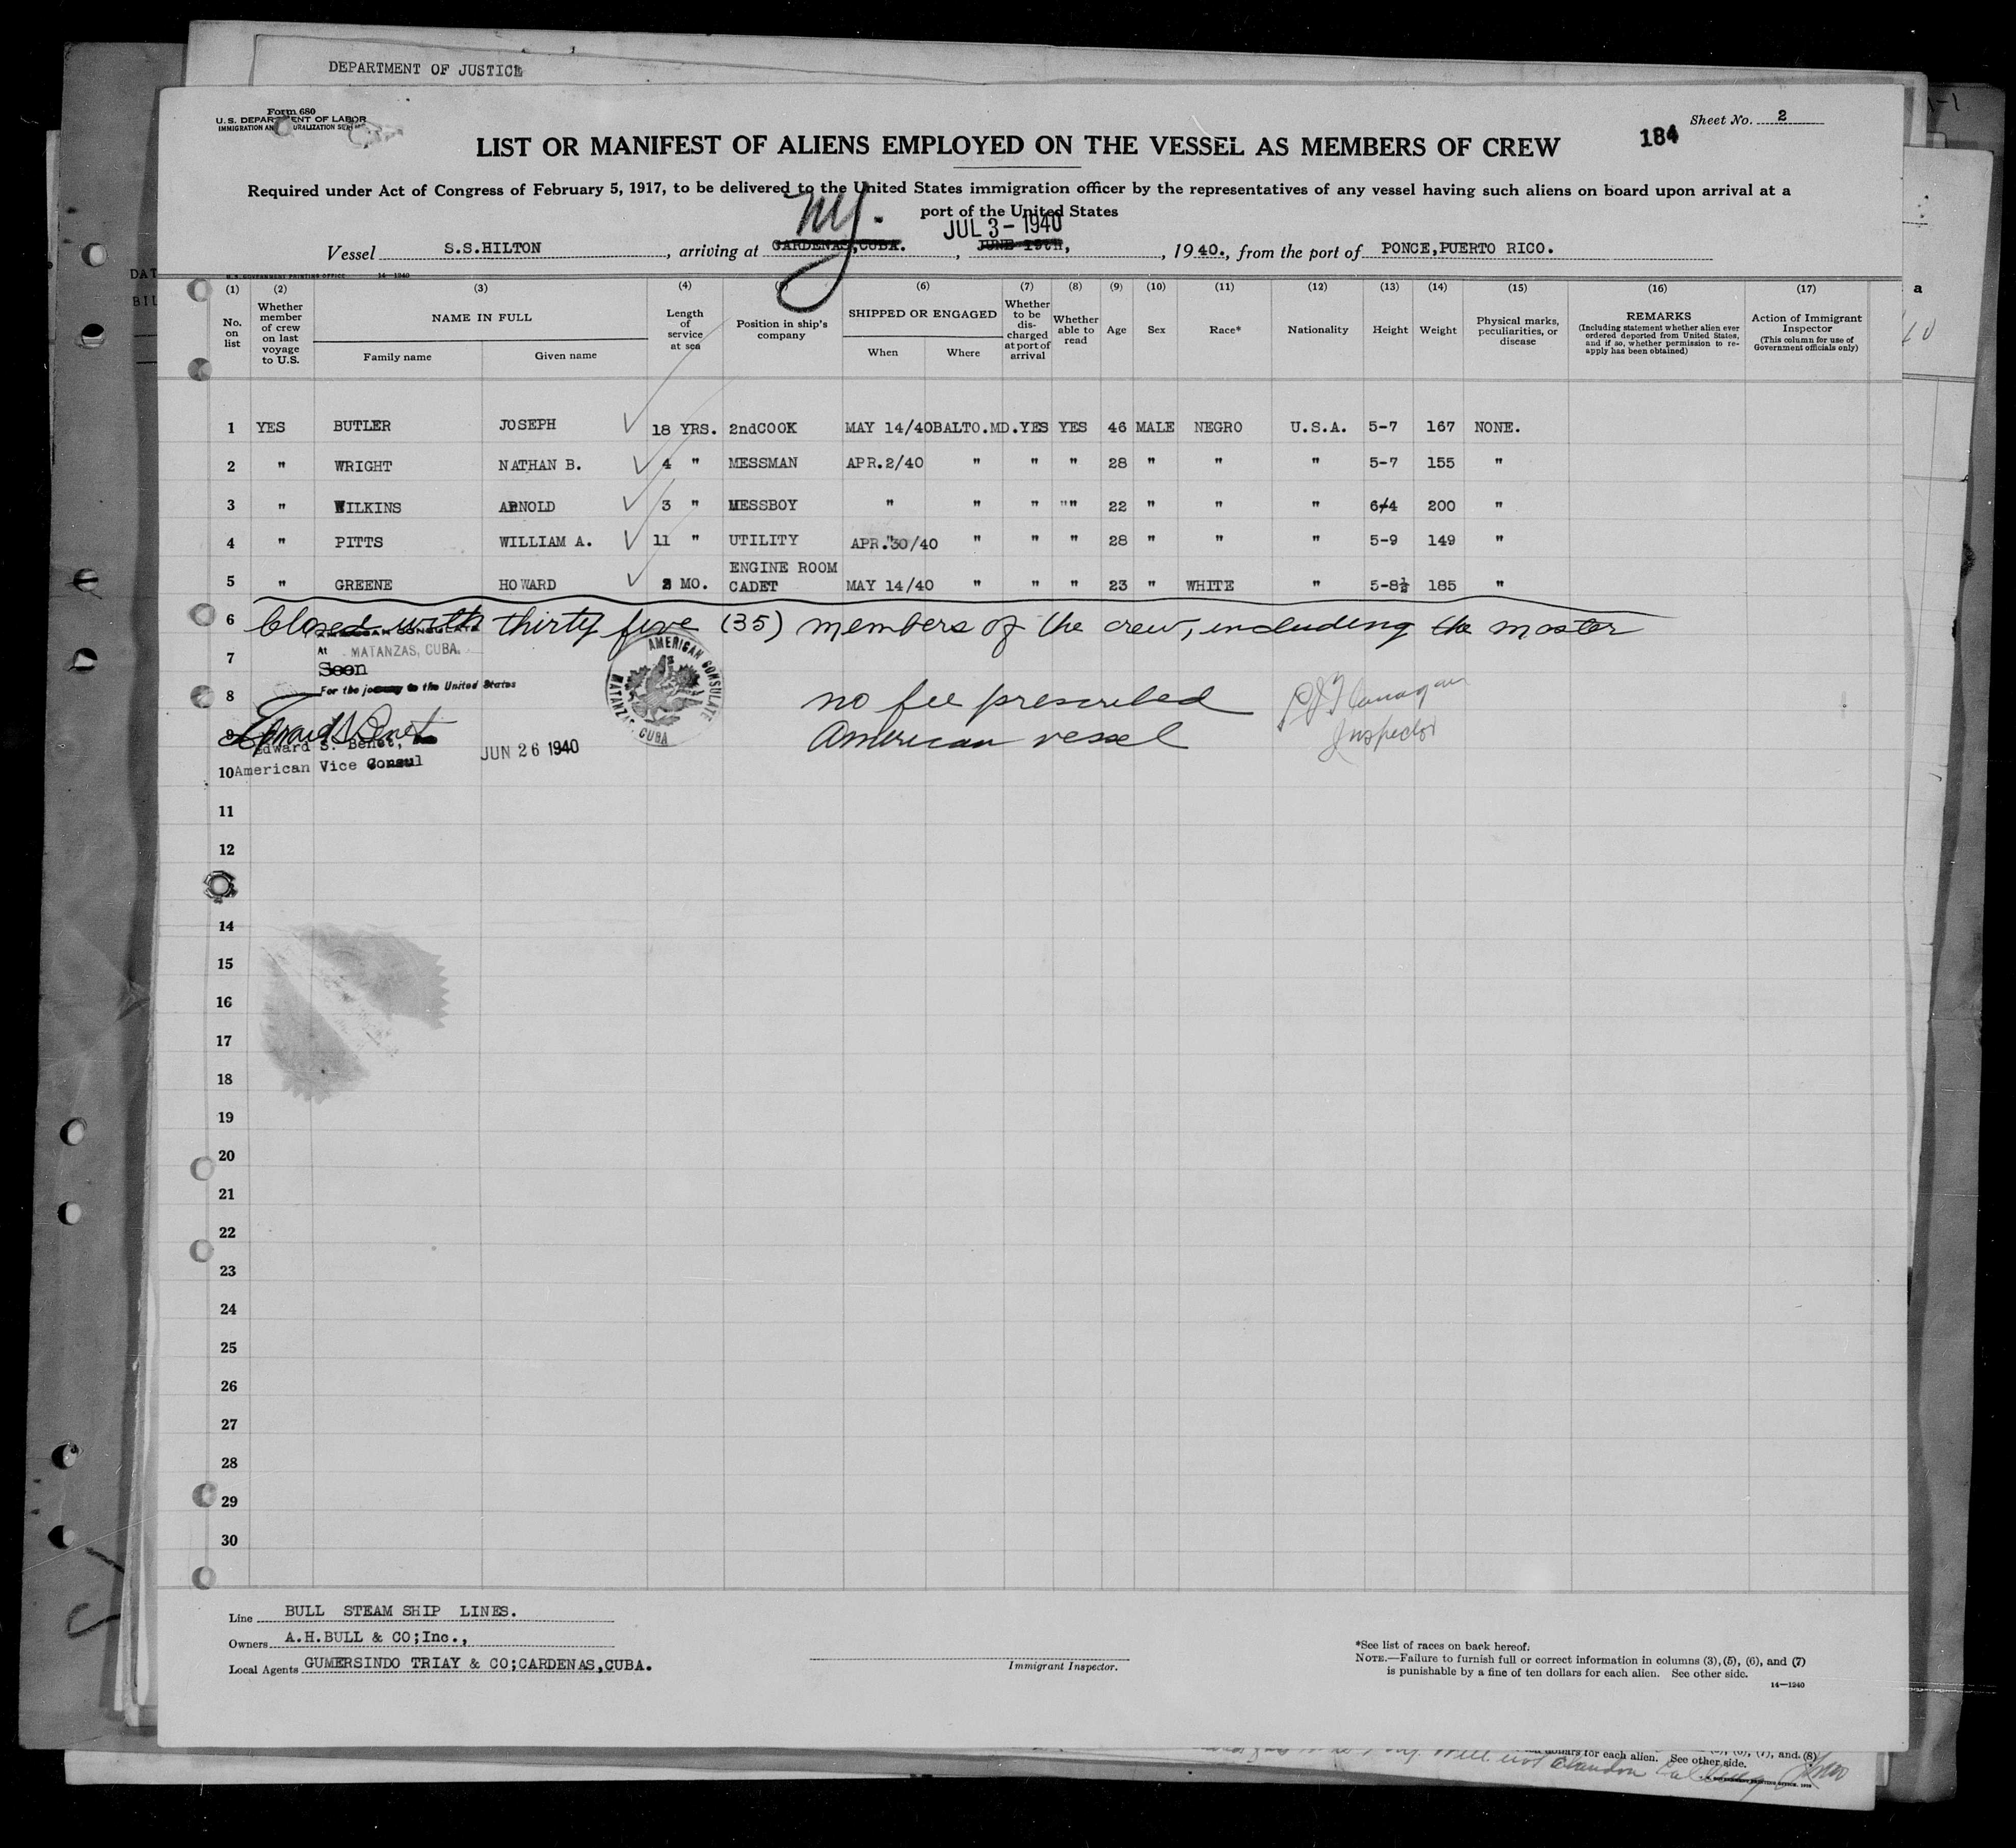 DEPARTMENT OF JUSTICE
Form 680
U. S. DEPARTMENT OF LABOR
IMMIGRATION AND NATURALIZATION SERVICE
Sheet No. 2
184
LIST OR MANIFEST OF ALIENS EMPLOYED ON THE VESSEL AS MEMBERS OF CREW
Required under Act of Congress of February 5, 1917, to be delivered to the United States immigration officer by the representatives of any vessel having such aliens on board upon arrival at a
port of the United States
NY. JUL 3 - 1940
Vessel S.S.HILTON, arriving at CARDENAS,CUBA. , JUNE 19th, , 1940., from the port of PONCE,PUERTO RICO.
U. S. GOVERNMENT PRINTING OFFICE 14-1240
(1) (2) (3) (4) (5) (6) (7) (8) (9) (10) (11) (12) (13) (14) (15) (16) (17)
No. on list
Whether member of crew on last voyage to U.S.
NAME IN FULL
Family name Given name
Length of service at sea
Position in ship's company
SHIPPED OR ENGAGED
When Where
Whether to be discharged at port of arrival
Whether able to read
Age
Sex
Race*
Nationality
Height
Weight
Physical marks, peculiarities, or disease
REMARKS
(Including statement whether alien ever ordered deported from United States, and if so, whether permission to reapply has been obtained)
Action of Immigrant Inspector
(This column for use of Government officials only)
1 YES BUTLER JOSEPH 18 YRS. 2ndCOOK MAY 14/40 BALTO.MD. YES YES 46 MALE NEGRO U.S.A. 5-7 167 NONE.
2 " WRIGHT NATHAN B. 4 " MESSMAN APR.2/40 " " " 28 " " " 5-7 155 "
3 " WILKINS ARNOLD 3 " MESSBOY " " " "" 22 " " " 6-4 200 "
4 " PITTS WILLIAM A. 11 " UTILITY APR.30/40 " " " 28 " " " 5-9 149 "
5 " GREENE HOWARD 2 MO. ENGINE ROOM CADET MAY 14/40 " " " 23 " WHITE " 5-8½ 185 "
6 Closed with thirty five (35) members of the crew, including the master
AMERICAN CONSULATE
7 At MATANZAS, CUBA.
Seen
8 For the journey to the United States
AMERICAN CONSULATE
MATANZAS, CUBA
no fee prescribed
American vessel
Inspector
9 Edward S. Benet
Edward S. Benet,
10 American Vice Consul JUN 26 1940
11
12
14
15
16
17
18
19
20
21
22
23
24
25
26
27
28
29
30
Line BULL STEAM SHIP LINES.
Owners A.H.BULL & CO;Inc.,
Local Agents GUMERSINDO TRIAY & CO;CARDENAS,CUBA.
Immigrant Inspector.
*See list of races on back hereof.
NOTE.—Failure to furnish full or correct information in columns (3), (5), (6), and (7)
is punishable by a fine of ten dollars for each alien. See other side.
14-1240
dollars for each alien. See other side.